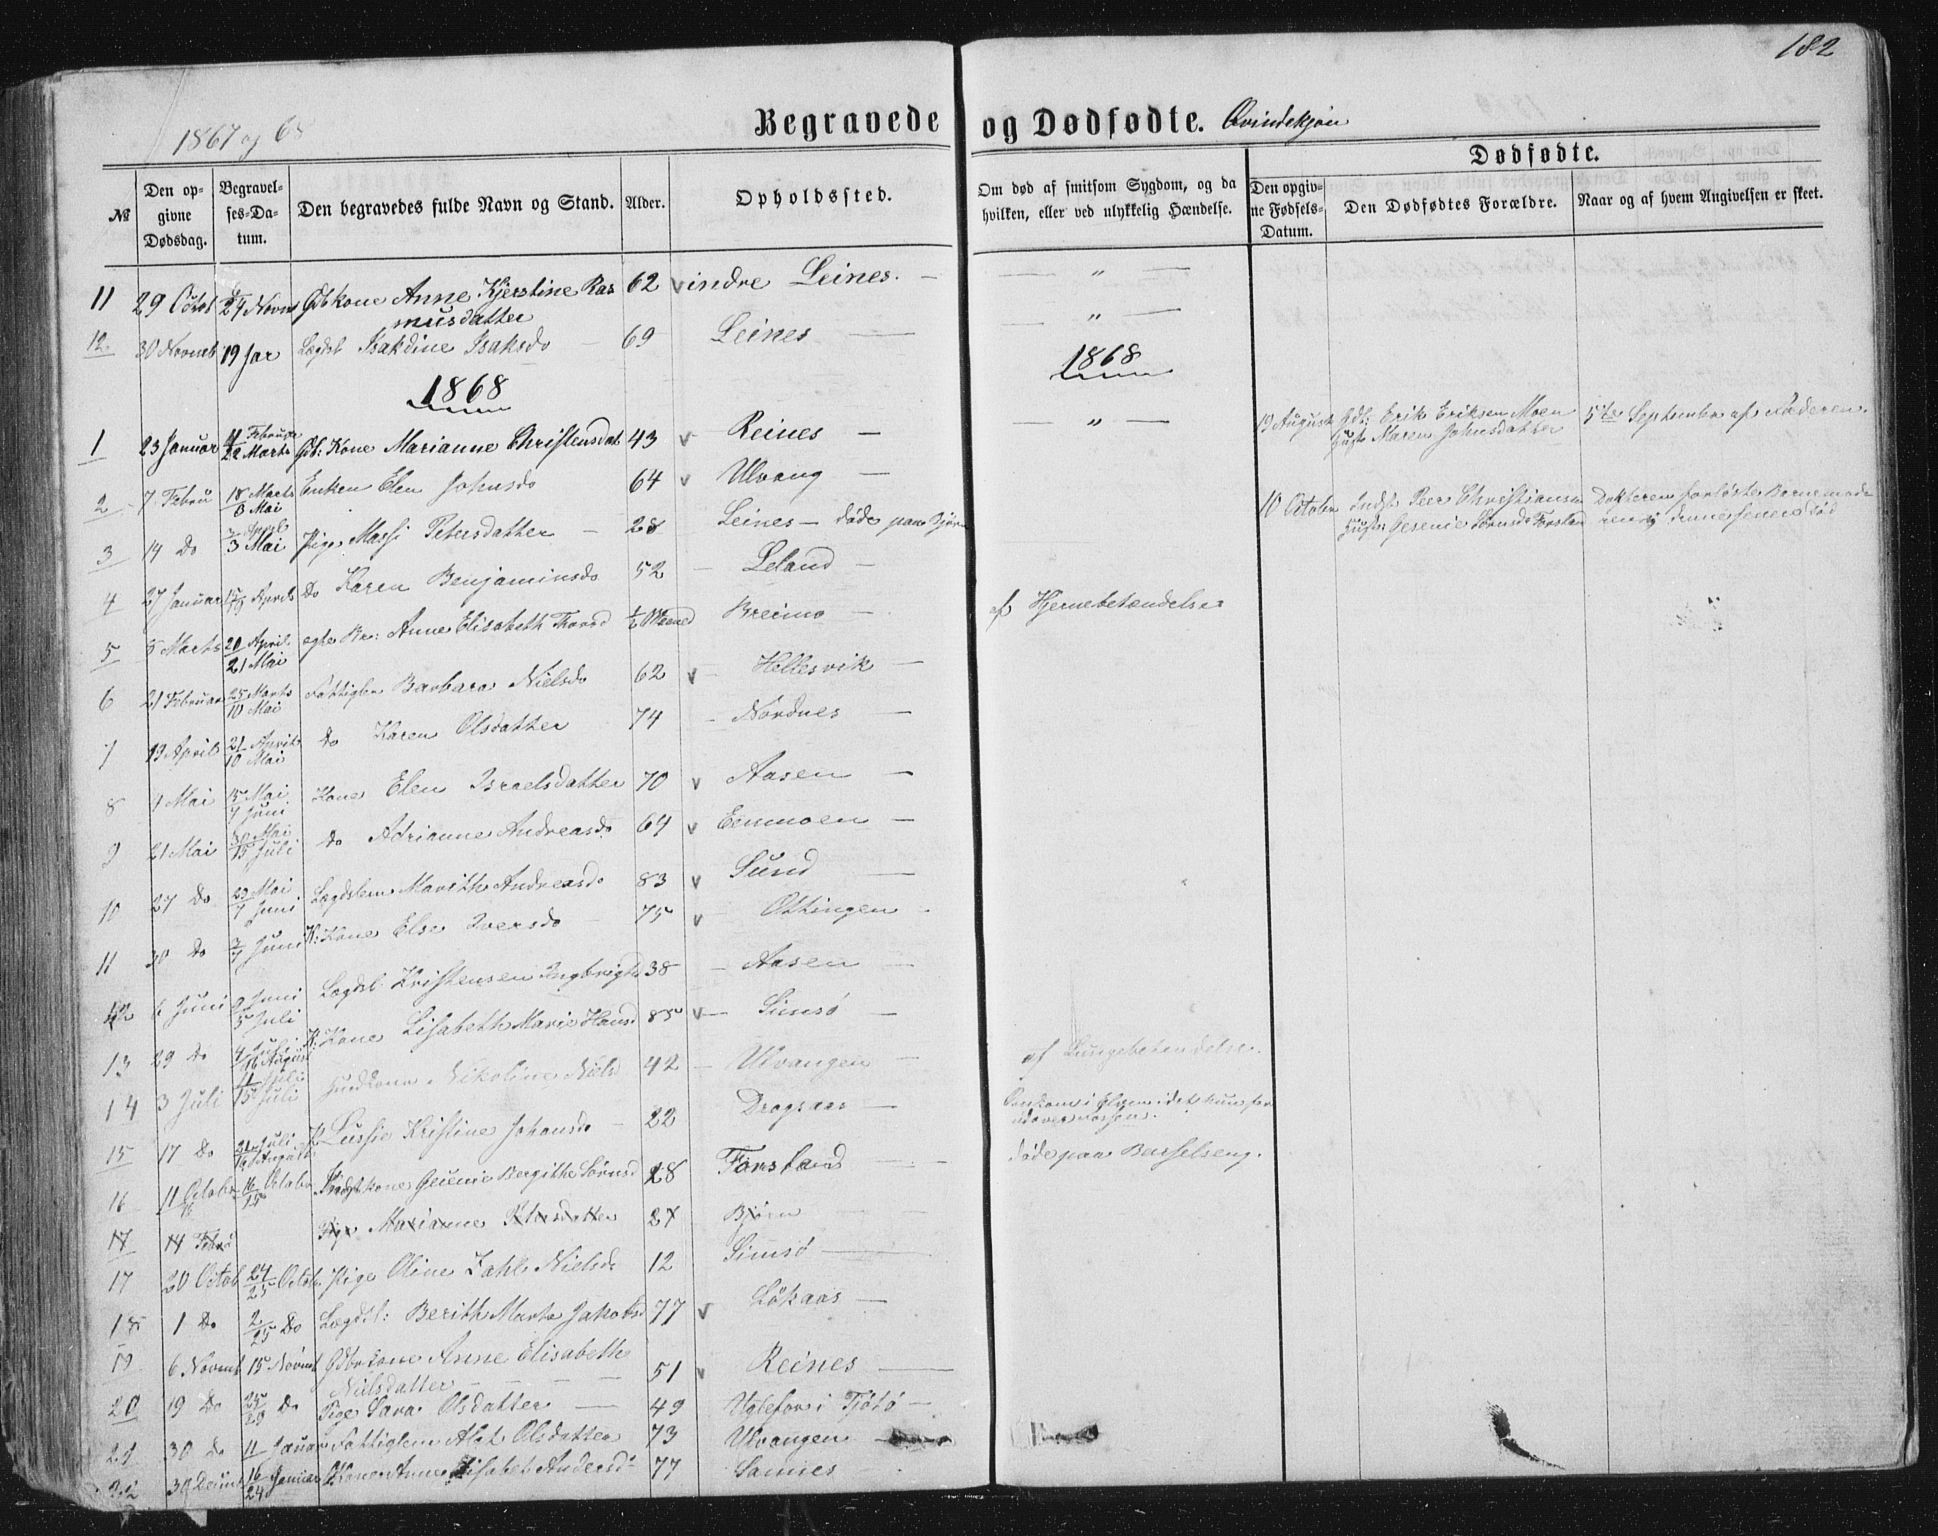 182
1867 og 68
Begravede og Dødfødte. Qvindekjøn
Dødfødte.
№
Den opgivne Dødsdag.
Begravelses-Datum.
Den begravedes fulde Navn og Stand.
Alder.
Opholdssted.
Om død af smitsom Sygdom, og da hvilken, eller ved ulykkelig Hændelse.
Den opgivne Fødsels-Datum.
Den Dødfødtes Forældre.
Naar og af hvem Angivelsen er skeet.
11 29 Octob 24 Novm Gbkone Anne Kjerstine Ras 62 v indre Leines. — — " —
musdatter
12. 30 Novmb 19 Jar Lægdsl Isakdine Isaksdo — 69 Leines — — " —
1868 1868
1 23 Januar 4 Februar Gb: Kone Marianne Christensdat 43 v Reines — — " — 19 August Gdb: Erik Eriksen Moen 5te September af Faderen.
22 Marts Hust Maren Johnsdatter
2 7 Febru 18 Marts Enken Elen Johnsdo 64 v Ulvang —
8 Mai 10 Octobr Indst Peer Christiansen
Hust: Gesenie Sørnsdo Forsland
3 14 Do 3 April Pige Massi Petersdatter — 28 Leines — døde paa Bjørn
3 Mai
4 27 Januar April Do Karen Benjaminsdo 52 — Leland —
5 5 Marts 20 April egte Br: Anne Elisabeth Thorsd ½ Maaned Breimo — af Hjernebetændelse
21 Mai
6 21 Februar 25 Marts Fattiglm Barbara Nielsdo 62 v Hellesvik —
10 Mai
7 13 April 21 April Do Karen Olsdatter 74 — Nordnes —
10 Mai
8 4 Mai 15 Mai Kone Elen Israelsdatter 70 v Aasen —
7 Juni
9 21 Mai 30 Mai Do Adrianne Andreasdo 64 v Eenmoen —
15 Juli
10 27 Do 29 Mai Lægdslem Marith Andreasdo 83 v Sund —
7 Juni
11 30 Do 3 Juni K: Kone Else Iversdo — 75 v Ottingen —
7
12 6 Juni 9 Juni Lægdsl Kristensen Ingbrigts 38 — Aasen —
5 Juli
13 29 Do 4 Juli K: Kone Lisabeth Marie Hansd 85 v — Simsø —
16 August
14 3 Juli 11 Juli Kone Nikoline Niels 42 — Ulvangen — af Lungebetændelse.
15 Juli
15 17 Do 21 Juli P Lussie Kristine Johansdo — 22 Dragsaas — Omkom i Elven
19 August
16 11 Octobr 16 Octobr Indstkone Gesenie Bergithe Sørnsd 28 Forsland — døde paa Barselseng.
15
17 14 Febr Pige Marianne Petersdatter 27 Bjørn —
17 20 Octob 24 Octob Pige Oline Zahl Nielsdo 12 Simsø —
25
18 1 Do 2 Do Lægdsl: Berith Marta Jakobsd 77 v Løkaas —
25
19 6 Novmb 15 Novmb Gdbrkone Anne Elisabeth
Nielsdatter — — — — 51 v Reines —
20 19 Do 25 Do Pige Sara Olsdatter — 49 Uglefor i Tjøtø —
29
21 30 Do 11 Januar Fattiglem Alet Olsdatter 73 Ulvangen —
22 30 Decmb 16 Januar Kone Anne Elisabet Andersd 77 Sannes —
24